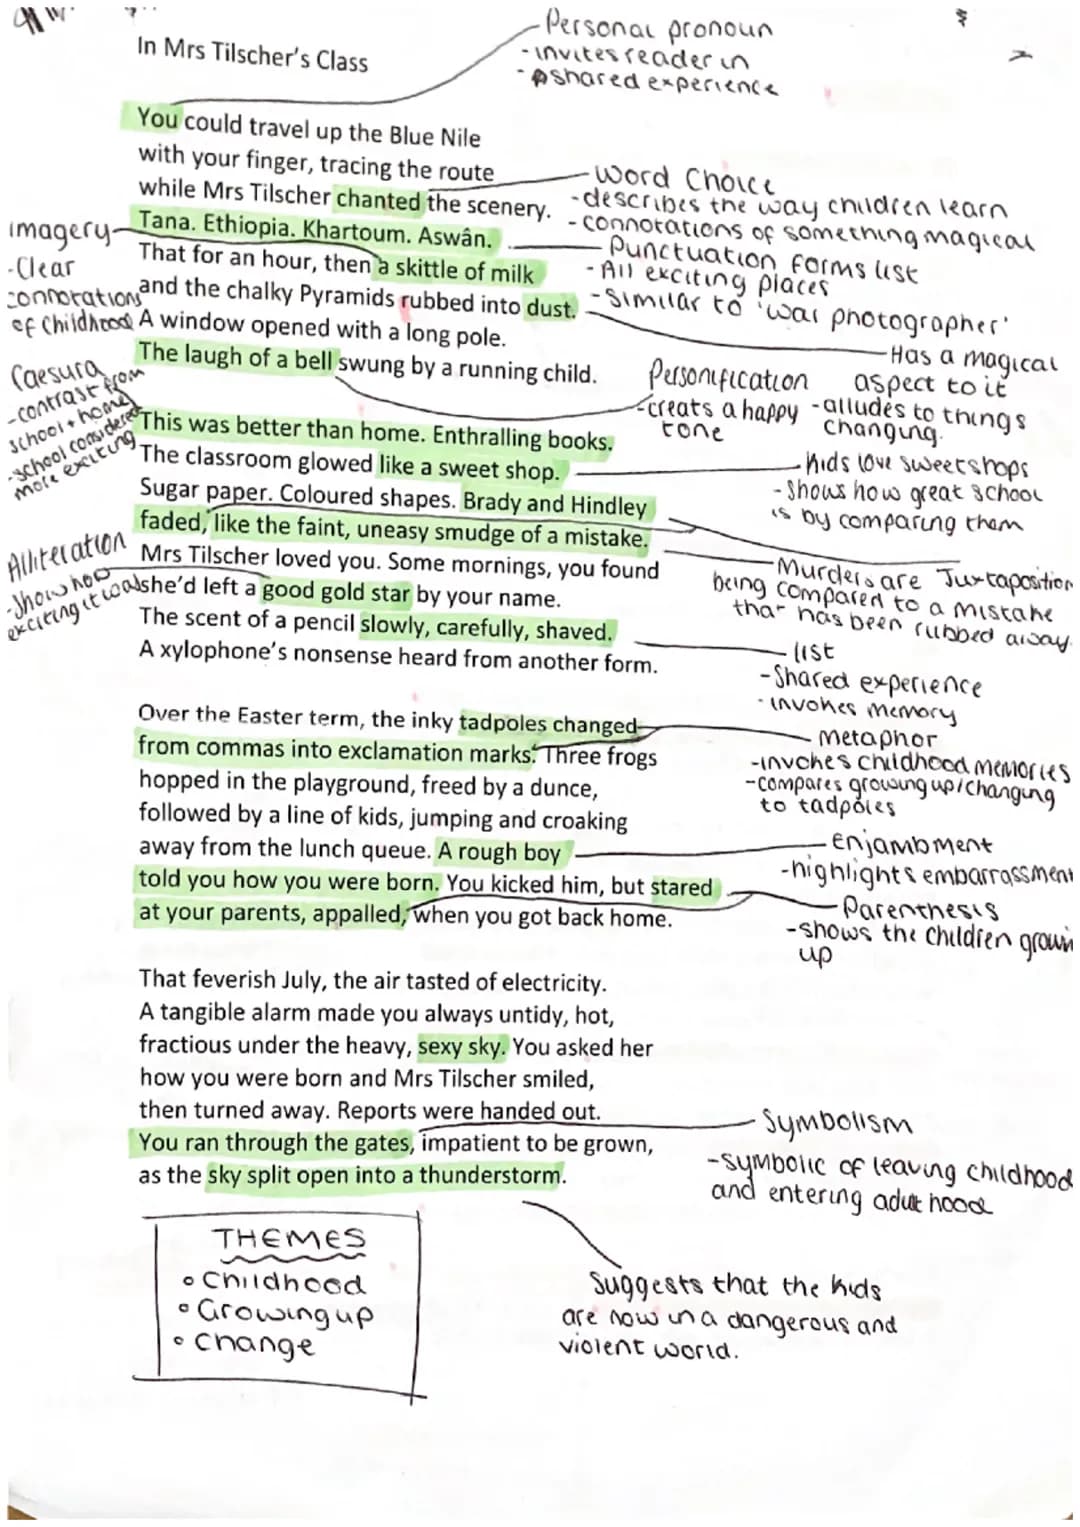 In Mrs Tilscher's Class
-Personal pronoun
-invites reader in
-shared experience
You could travel up the Blue Nile
with your finger, tracing the route
while Mrs Tilscher chanted the scenery.
Tana. Ethiopia. Khartoum. Aswân.
That for an hour, then a skittle of milk
and the chalky Pyramids rubbed into dust.
A window opened with a long pole.
The laugh of a bell swung by a running child.
-Word Choice
-describes the way children learn
-connotations of something magical
Punctuation forms list
-All exciting places
-Similar to 'war photographer'
imagery
-Clear
connotations
of Childhood
-Has a magical
aspect to it
-alludes to things
changing.
Personification
-creats a happy
tone
Caesura
-contrast from
school + home
-school considered
more exciting
This was better than home. Enthralling books.
The classroom glowed like a sweet shop.
Sugar paper. Coloured shapes. Brady and Hindley
faded, like the faint, uneasy smudge of a mistake.
Mrs Tilscher loved you. Some mornings, you found
she'd left a good gold star by your name.
The scent of a pencil slowly, carefully, shaved.
A xylophone's nonsense heard from another form.
-kids love sweetshops
-Shows how great school
is by comparing them
-Murders are Juxtaposition
being compared to a mistake
that has been rubbed away.
Alliteration
-Show how
exciting it was
-list
-Shared experience
-invokes memory
Over the Easter term, the inky tadpoles changed
from commas into exclamation marks. Three frogs
hopped in the playground, freed by a dunce,
followed by a line of kids, jumping and croaking
away from the lunch queue. A rough boy
told you how you were born. You kicked him, but stared
at your parents, appalled, when you got back home.
-metaphor
-invokes childhood memories
-compares growing up/changing
to tadpoles
-enjambment
-highlights embarrassment
-Parenthesis
-shows the children growin
up
That feverish July, the air tasted of electricity.
A tangible alarm made you always untidy, hot,
fractious under the heavy, sexy sky. You asked her
how you were born and Mrs Tilscher smiled,
then turned away. Reports were handed out.
You ran through the gates, impatient to be grown,
as the sky split open into a thunderstorm.
-Symbolism
-symbolic of leaving childhood
and entering adult hood
THEMES
Childhood
Growing up
change
Suggests that the kids
are now in a dangerous and
violent world.